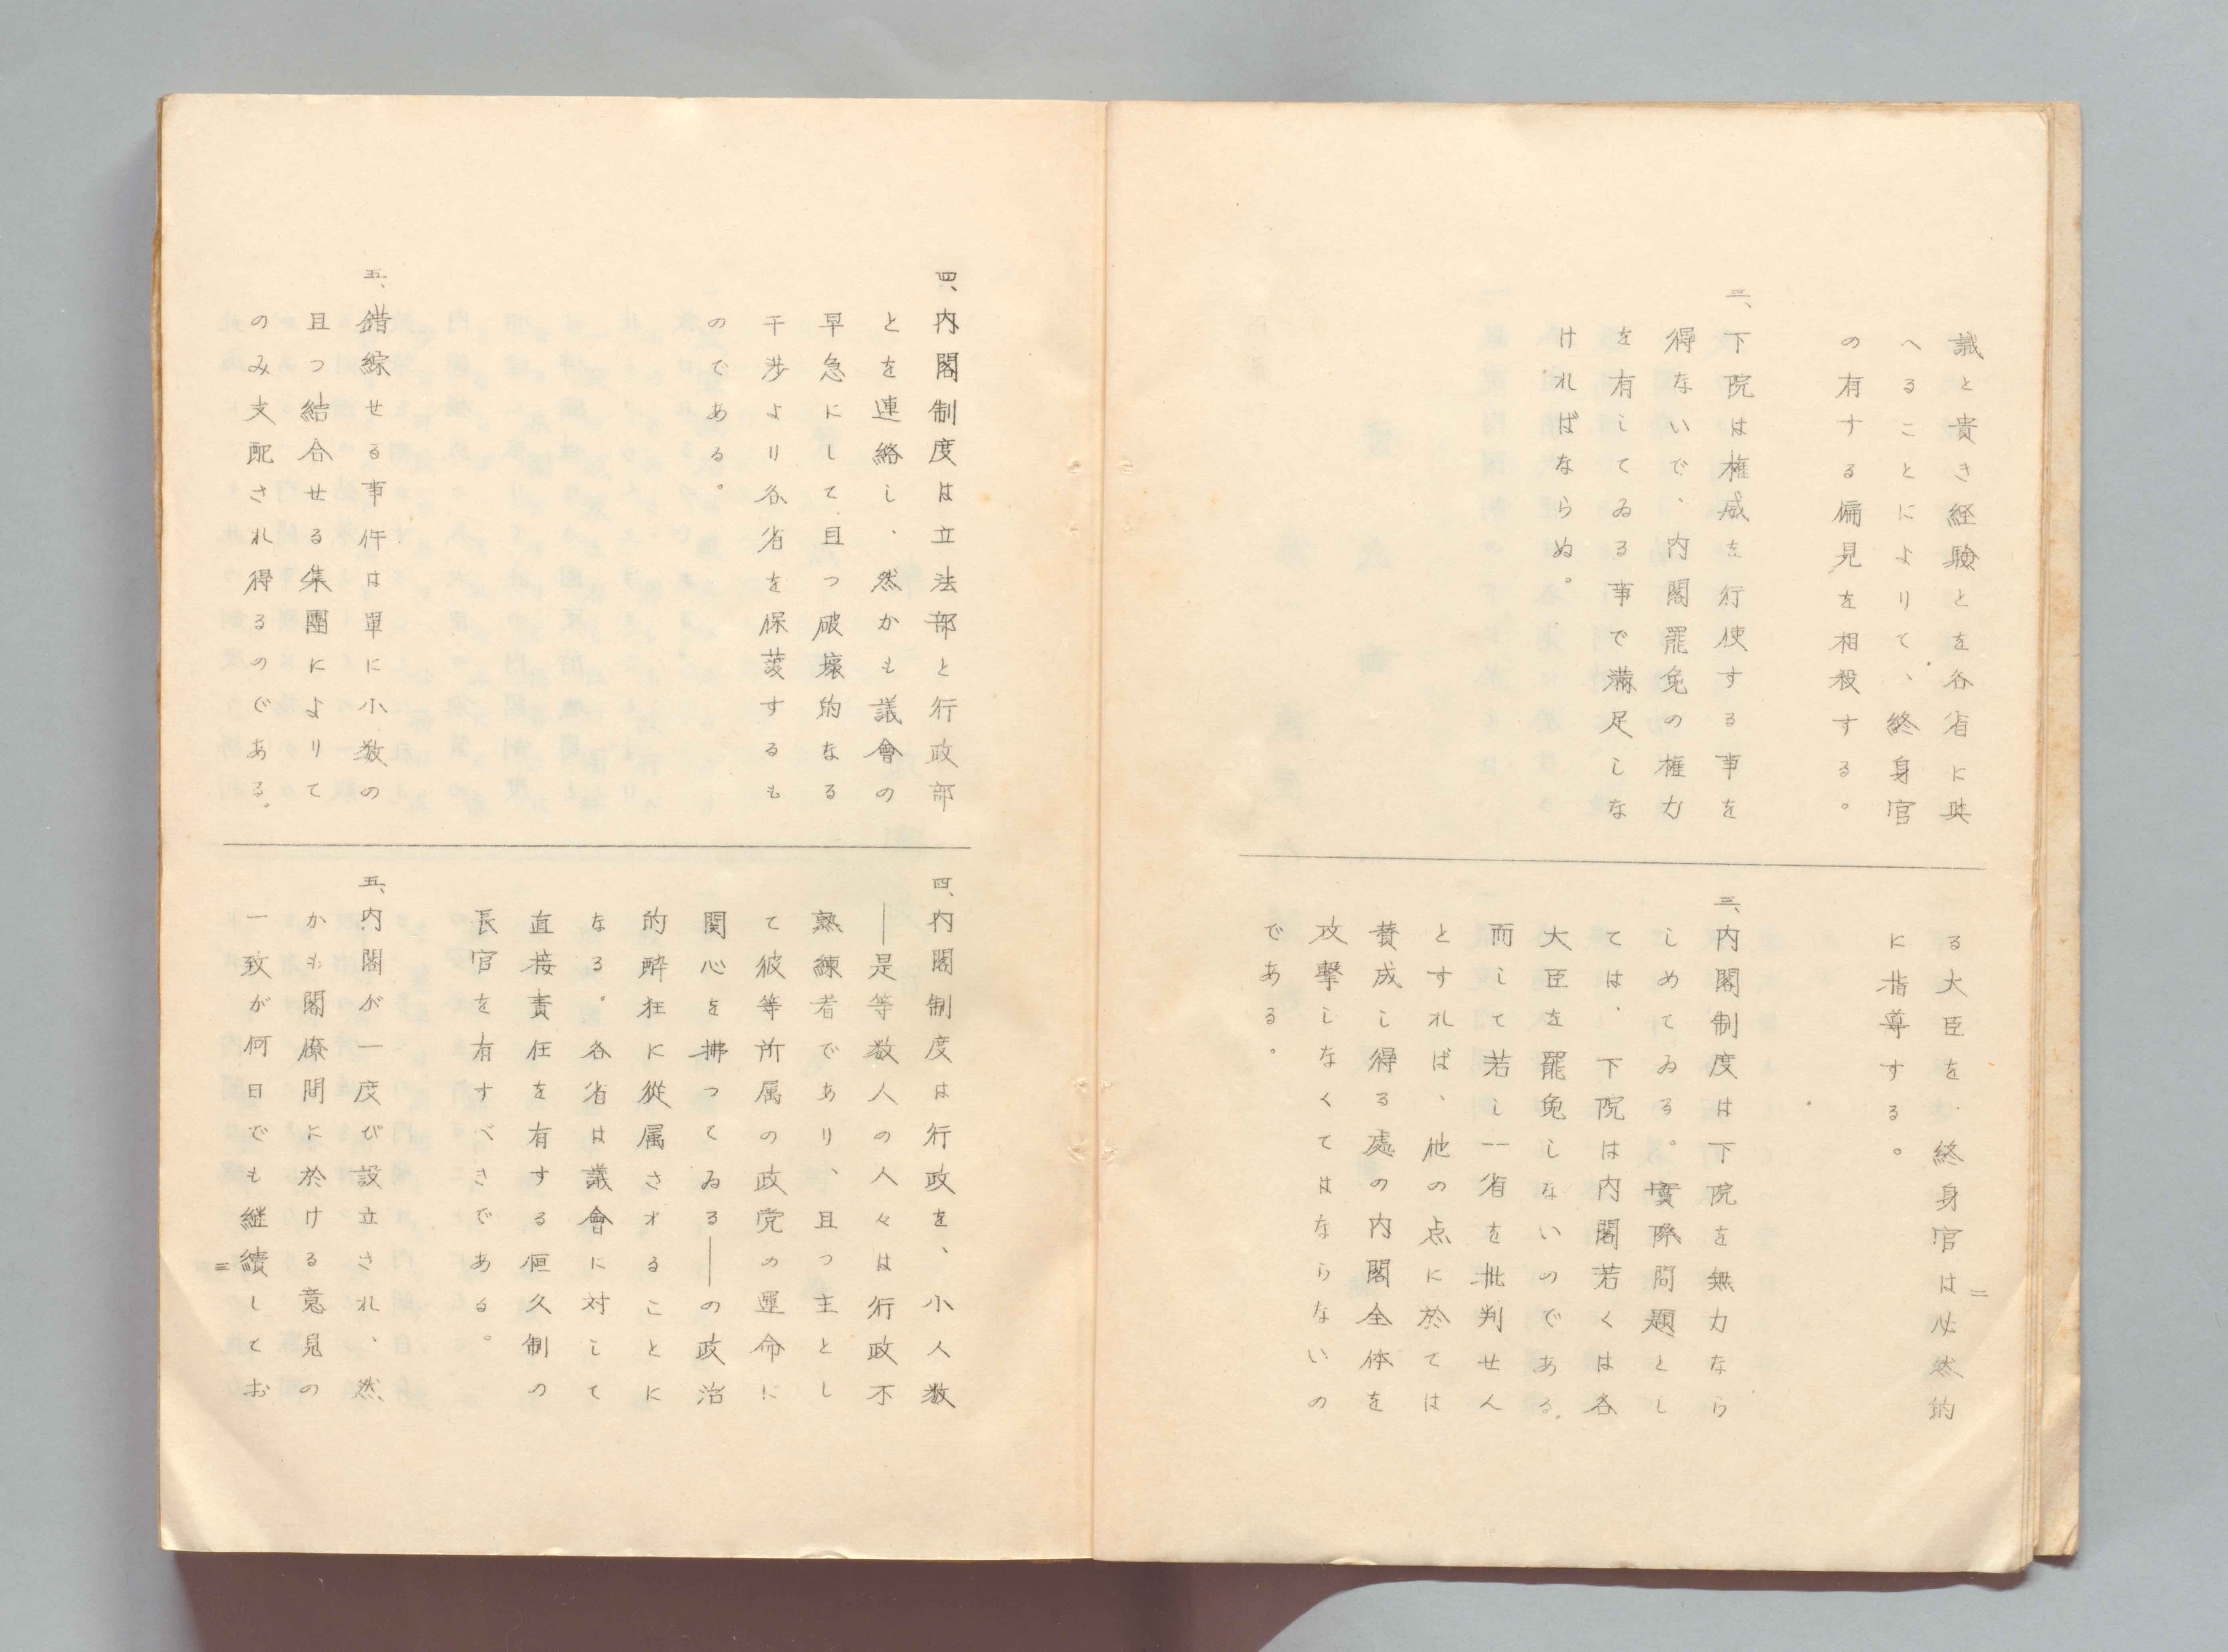 識と貴き経驗とを各省に與
へることによりて、終身官
の有する偏見を相殺する。
三、下院は権威を行使する事を
得ないで、内閣罷免の権力
を有してゐる事で満足しな
ければならぬ。
る大臣を、終身官は必然的
に指導する。
三、内閣制度は下院を無力なら
しめてゐる。實際問題とし
ては、下院は内閣若くは各
大臣を罷免しないのである。
而して若し一省を批判せん
とすれば、他の点に於ては
賛成し得る處の内閣全体を
攻撃しなくてはならないの
である。
二
四、内閣制度は立法部と行政部
とを連絡し、然かも議會の
早急にして且つ破壊的なる
干渉より各省を保護するも
のである。
五、錯綜せる事件は單に小数の
且つ結合せる集團によりて
のみ支配され得るのである。
四、内閣制度は行政を、小人数
―是等数人の人々は行政不
熟練者であり、且つ主とし
て彼等所属の政党の運命に
関心を拂つてゐる―の政治
的酔狂に從属さすることに
なる。各省は議會に対して
直接責任を有する恒久制の
長官を有すべきである。
五、内閣が一度び設立され、然
かも閣僚間に於ける意見の
一致が何日でも継續してお
三